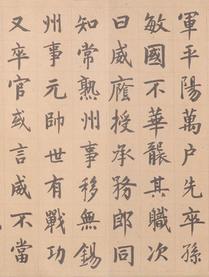 軍平陽萬户先卒孫
敏國不華襲其職次
曰威廕授承務郎同
知常熟州事移無錫
州事元帥世有戰功
又卒官或言威不當